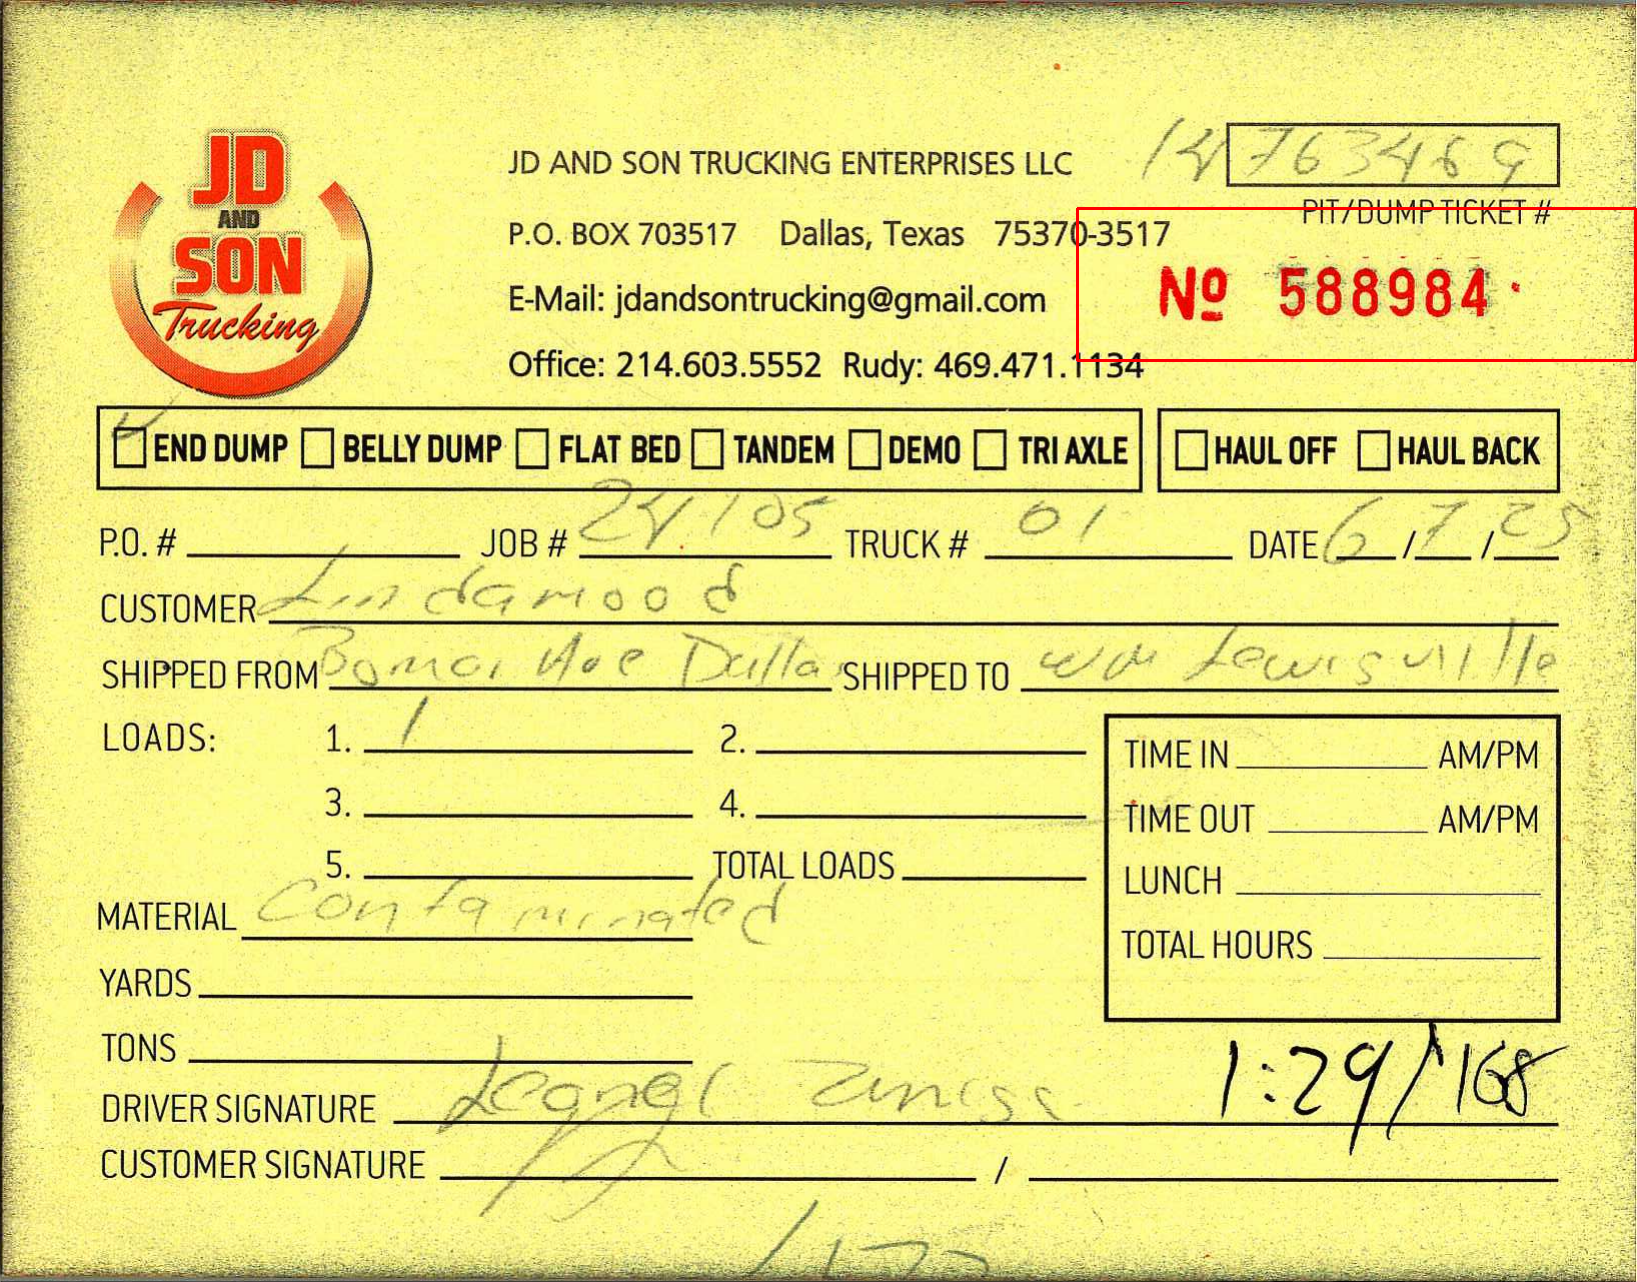 JD
AND
SON
Trucking
JD AND SON TRUCKING ENTERPRISES LLC
P.O. BOX 703517 Dallas, Texas 75370-3517
E-Mail: jdandsontrucking@gmail.com
Office: 214.603.5552 Rudy: 469.471.1134
14763469
PIT/DUMP TICKET #
Nº 588984
END DUMP BELLY DUMP FLAT BED TANDEM DEMO TRI AXLE HAUL OFF HAUL BACK
P.O. # JOB # 24105 TRUCK # 01 DATE 6/7/25
CUSTOMER Lindamood
SHIPPED FROM Dallas SHIPPED TO WM Lewisville
LOADS: 1. 1 2.
3. 4.
5. TOTAL LOADS
TIME IN AM/PM
TIME OUT AM/PM
LUNCH
TOTAL HOURS
MATERIAL Contaminated
YARDS
TONS
DRIVER SIGNATURE
1:29/168
CUSTOMER SIGNATURE /